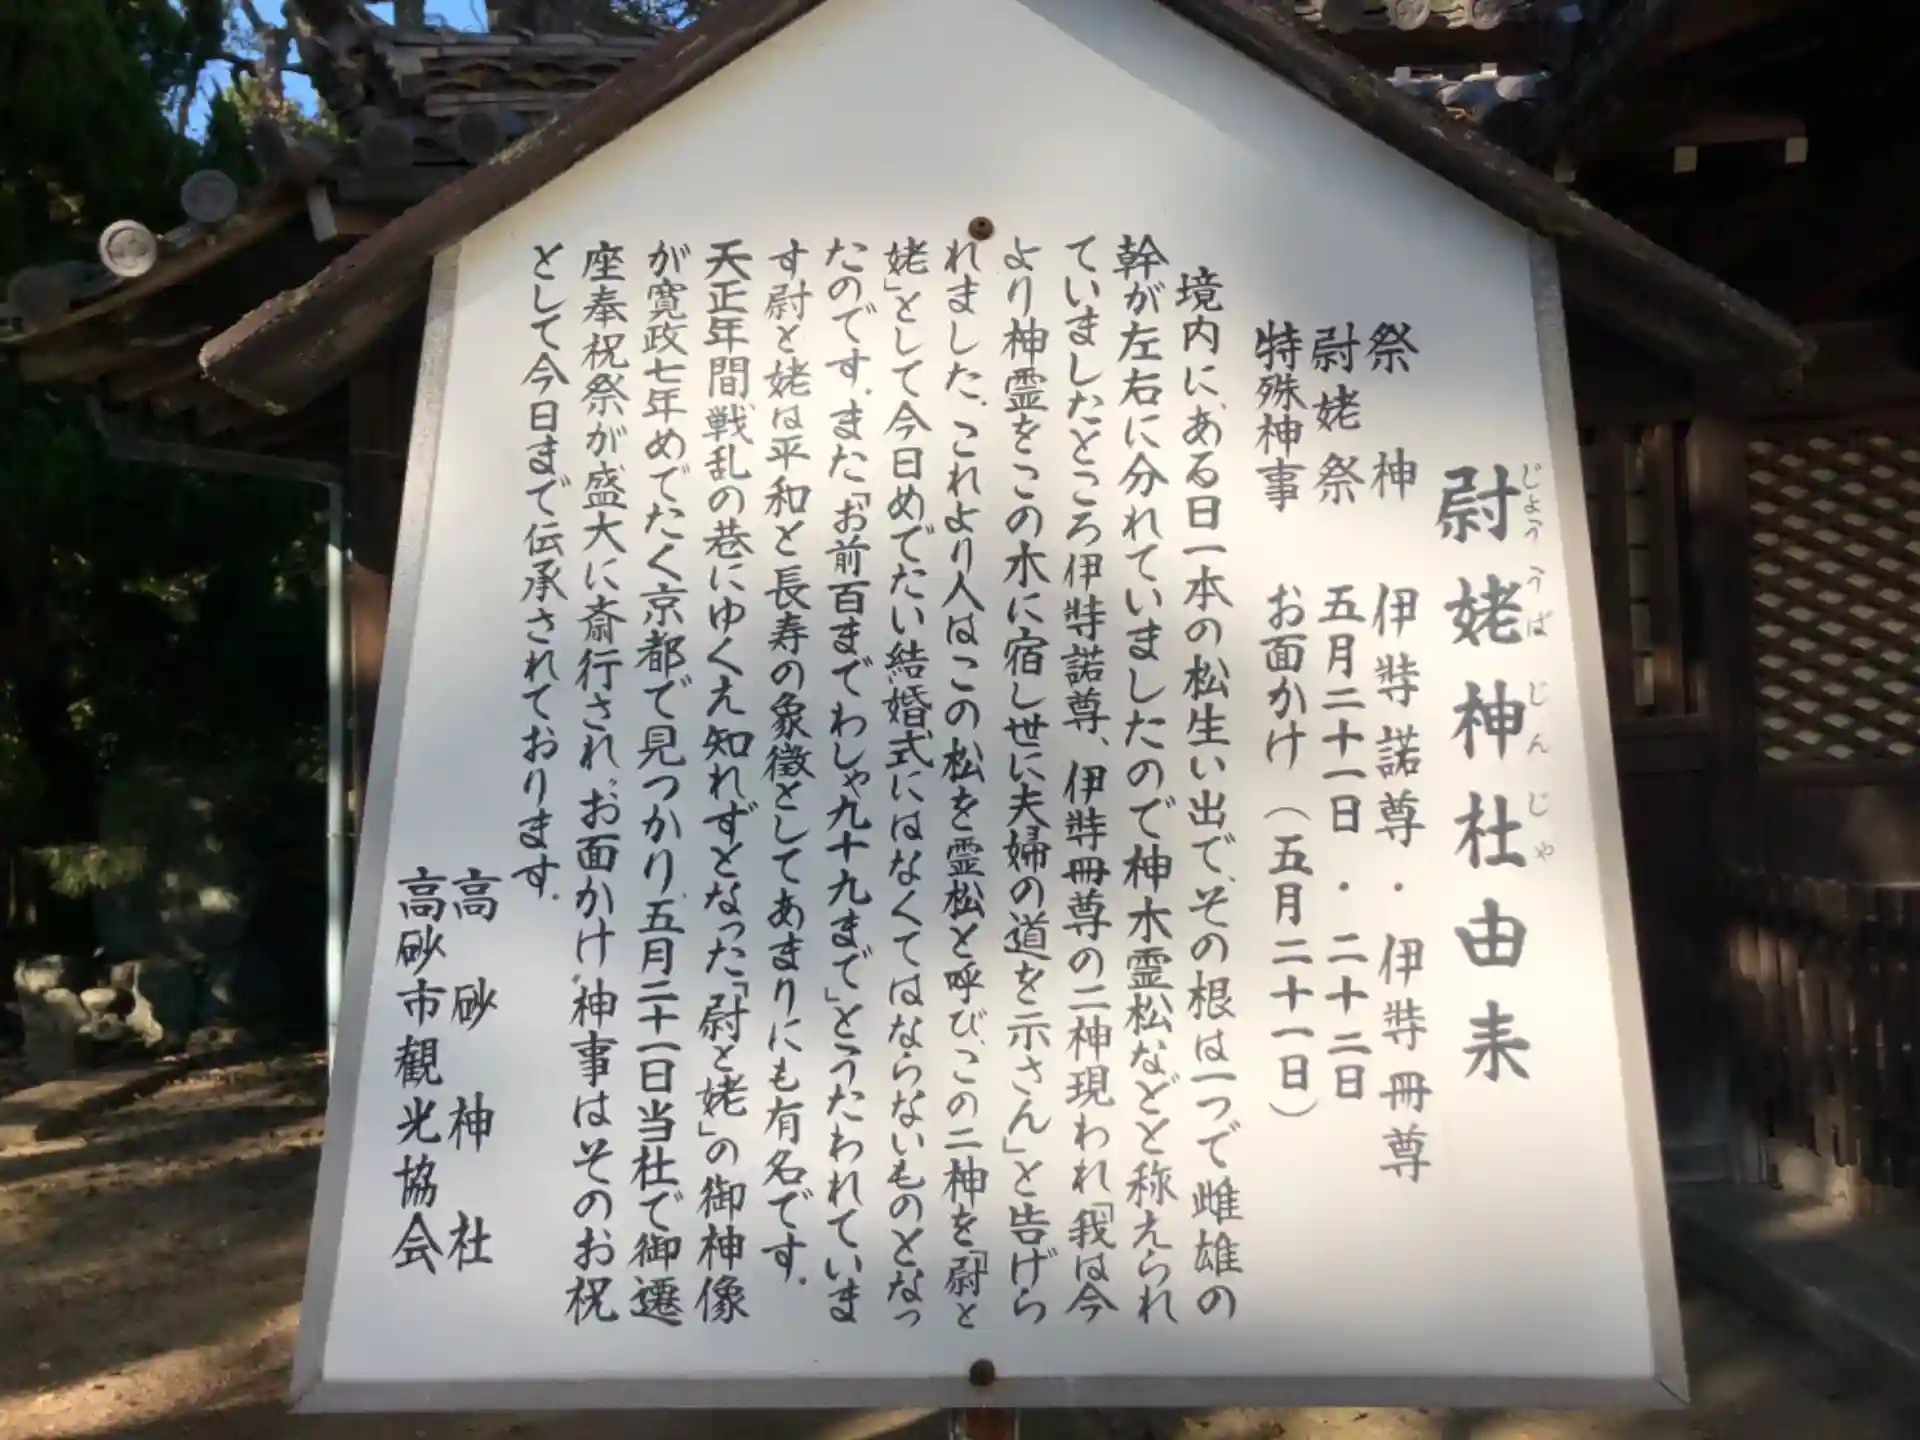 尉姥神社由来
じょう うば じん じゃ
祭神 伊弉諾尊・伊弉冊尊
尉姥祭 五月二十一日・二十二日
特殊神事 お面かけ（五月二十一日）
境内に、ある日一本の松生い出で、その根は一つで雌雄の
幹が左右に分れていましたので神木霊松などと称えられ
ていましたところ伊弉諾尊、伊弉冊尊の二神現われ「我は今
より神霊をこの木に宿し世に夫婦の道を示さん」と告げら
れました。これより人はこの松を霊松と呼び、この二神を「尉と
姥」として今日めでたい結婚式にはなくてはならないものとなっ
たのです。また「お前百までわしゃ九十九まで」とうたわれていま
す尉と姥は平和と長寿の象徴としてあまりにも有名です。
天正年間戦乱の巷にゆくえ知れずとなった「尉と姥」の御神像
が寛政七年めでたく京都で見つかり、五月二十一日当社で御遷
座奉祝祭が盛大に斎行され、〝お面かけ〟神事はそのお祝
として今日まで伝承されております。
高砂神社
高砂市観光協会